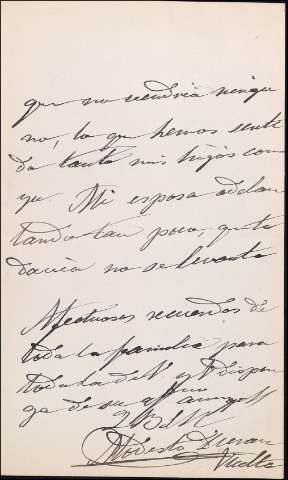 que no vendria ningu
no, lo que hemos senti
do tanto mis hijos como
yo. Mi esposa adelan
tando tan poco, que to
davia no se levanta
Afectuosos recuerdos de
toda la familia para
toda la de V. y V. dispon
ga de su affmo amigo
Q B S M
Modesto Duran
Vuelta